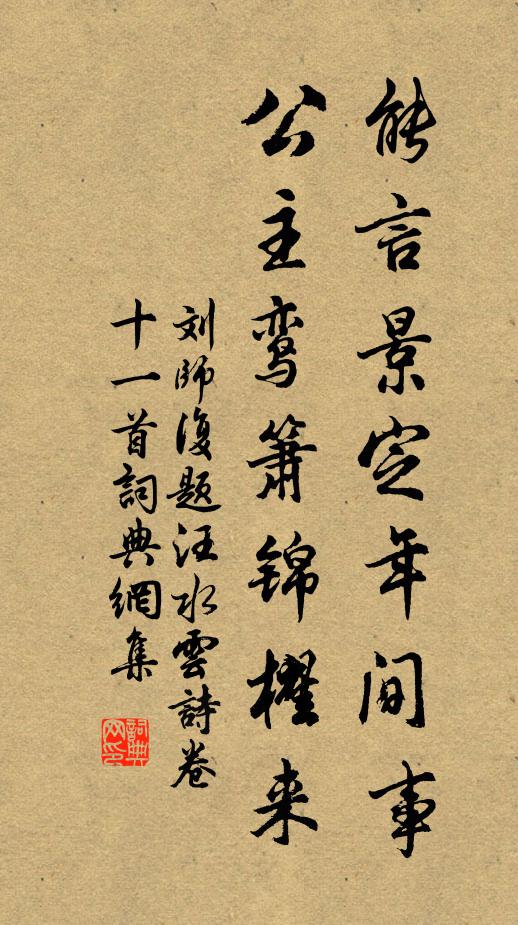 能言景定年间事
公主鸾箫锦櫂来
刘師復题汪水雲詩卷
十一首詞典網集
詞典網印